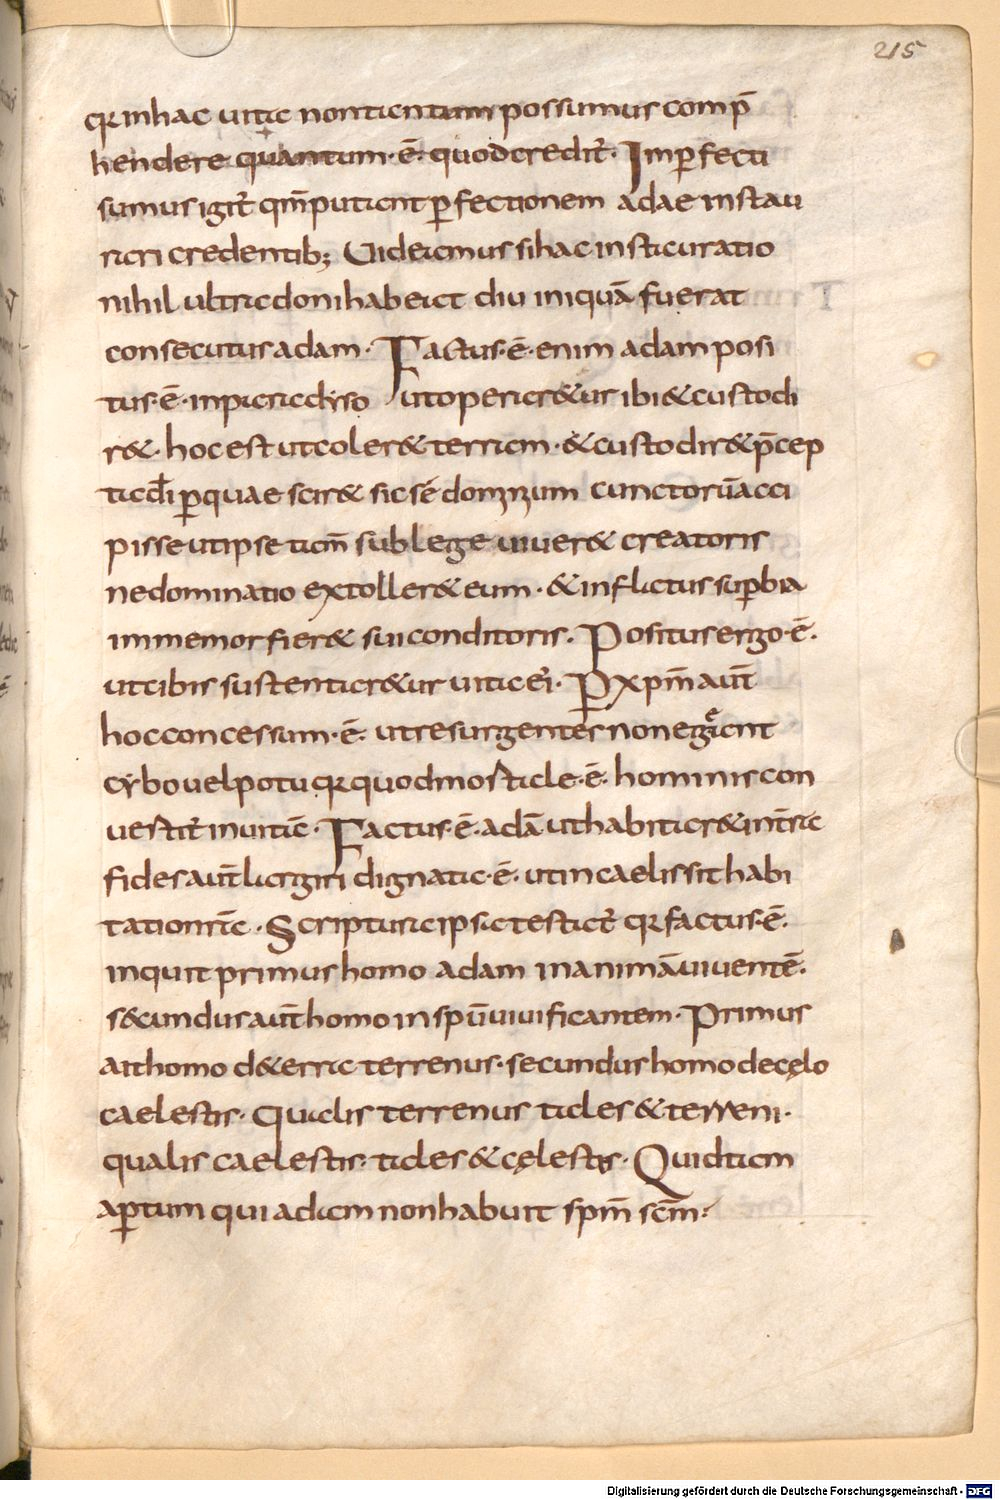 215
qr in hac uita non tantum possumus comp̄
hendere quantum · ē · quod credit̄ · Imperfecti
sumus igit̄ qm̄ putant perfectionem adae instau
rari credentib; Uideamus si hac instauratio
nihil ultra doni habeat diu in quā fuerat
consecutus adam · Factus · ē · enim adam posi
tus · ē · in paradyso ut operar&ur ibi & custodi
r& · hoc est ut coler& terram · & custodir& p̄cep
ta dī per quae scir& sic sē donum cunctorū acci
pisse ut ipse tam̄ sub lege uiuer& creatoris
ne dominatio extoller& eum · & inflatus supbia
immemor fier& sui conditoris. Positus ergo · ē ·
ut cibis sustentar&ur uita ei · P xpm̄ aut̄
hoc concessum · ē · ut resurgentes non egeant
cybo uel potu qr quod mortale · ē · hominis con
uertit̄ in uitā · Factus · ē · adā ut habitar&in t̄ra
fides aut̄ largiri dignata · ē · ut in caelis sit habi
tatio nr̄a · Scriptura ipsa testat̄ qr factus · ē ·
inquit primus homo adam in animā uiuentē ·
s&cundus aut̄ homo in spū uiuificantem · Primus
ait homo d&erra terrenus · secundus homo de cęlo
caelestis · Qualis terrenus tales & terreni ·
qualis caelestis · tales & cęlestis · Quid tam
apertum qui adam non habuit spm̄ scm̄ ·
Digitalisierung gefördert durch die Deutsche Forschungsgemeinschaft - DFG